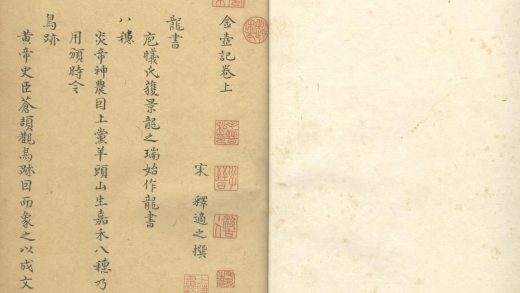 金壺記卷上
宋 釋適之撰
龍書
庖犧氏獲景龍之瑞始作龍書
八穗
炎帝神農因上黨羊頭山生嘉禾八穗乃
用頒時令
鳥跡
黃帝史臣蒼頡觀鳥跡因而象之以成文